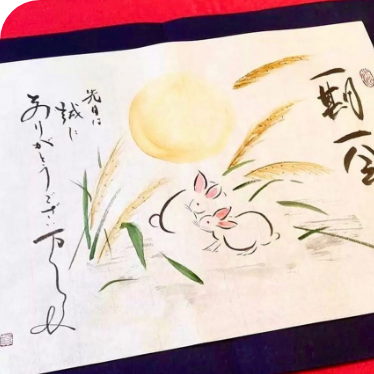 一期一会
先日は
誠に
ありがとうございました